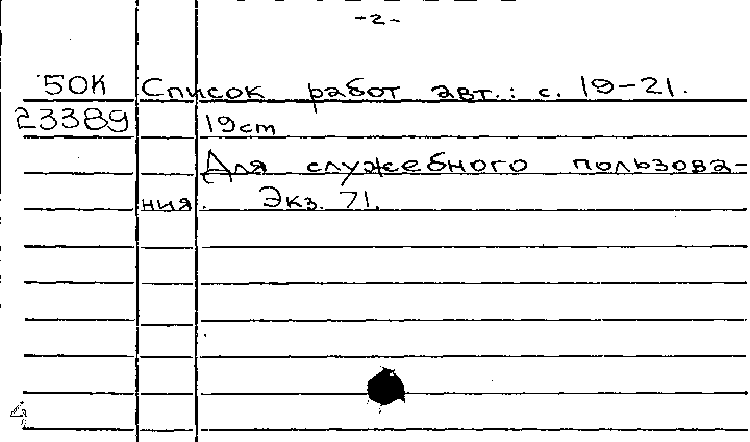 -2-
50К Список работ авт.: с. 19-21.
23389 19cm
Для служебного пользова-
ния. Экз. 71.
4